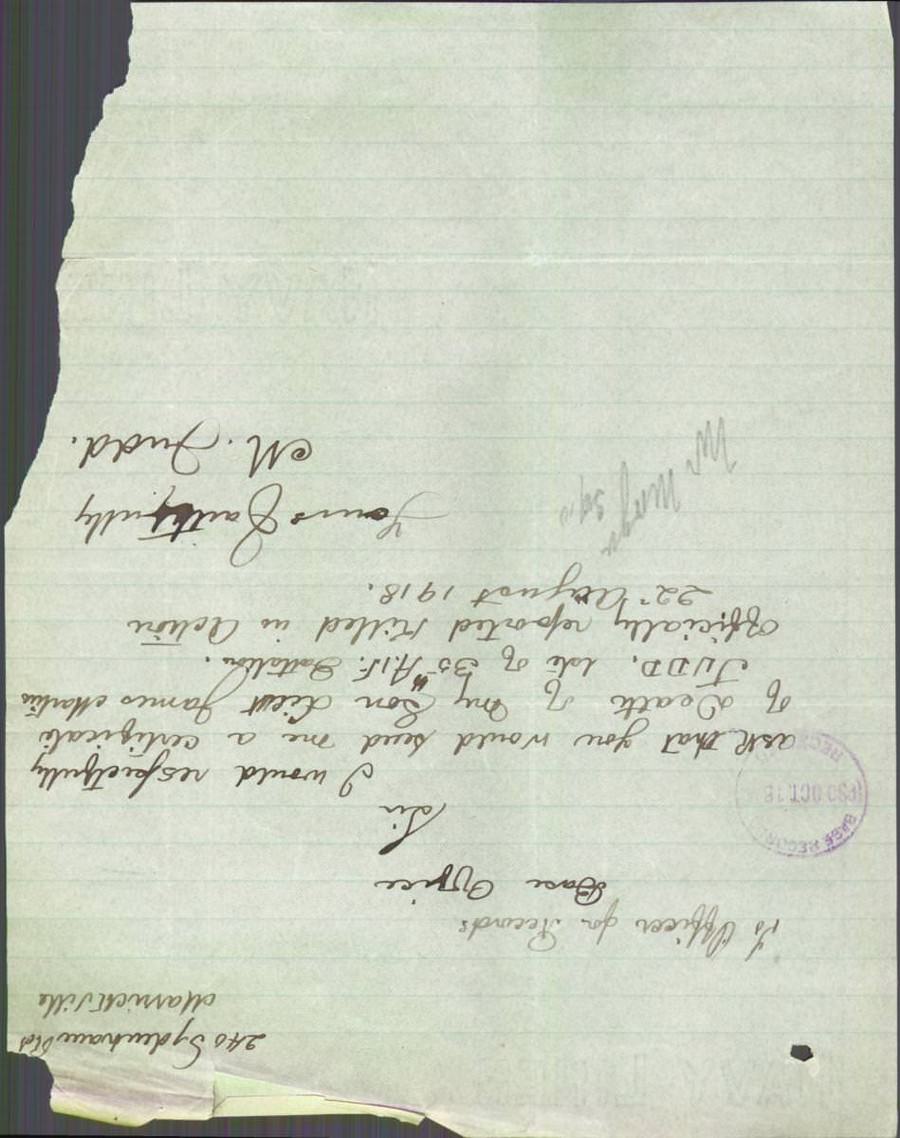 240 Sydenham Rd
Marrickville
To Officer for Records
Base Office
Sir
I would respectfully
ask that you would send me a certificate
of Death of my Son Lieut James Martin
JUDD. late of 35th A.I.F. Battalion.
Officially reported Killed in Action
22nd August 1918.
Yours Faithfully
M. Judd.
Mr
BASE RECORDS
30 OCT. 18